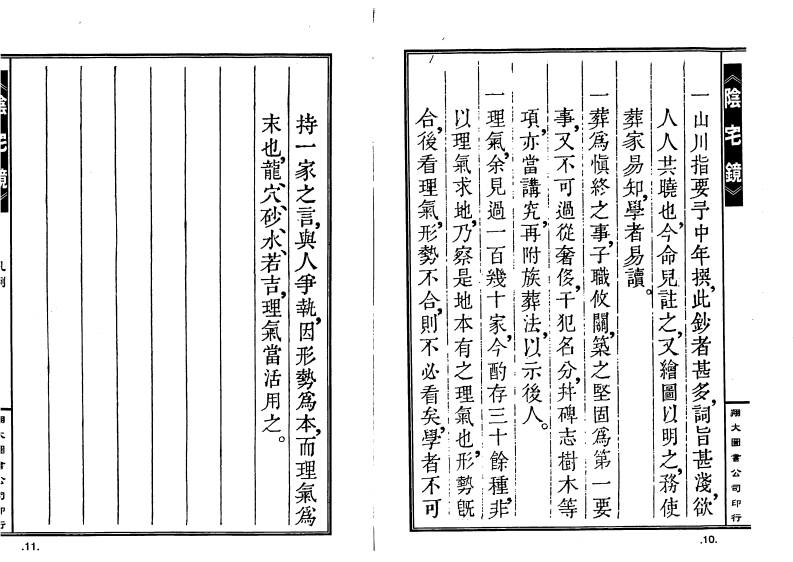 《陰宅鏡》
一山川指要予中年撰，此鈔者甚多，詞旨甚淺，欲
人人共曉也，今命兒註之，又繪圖以明之，務使
葬家易知，學者易讀。
一葬爲愼終之事，子職攸關，築之堅固爲第一要
事，又不可過從奢侈，干犯名分，幷碑志樹木等
項，亦當講究，再附族葬法，以示後人。
一理氣，余見過一百幾十家，今酌存三十餘種，非
以理氣求地，乃察是地本有之理氣也，形勢旣
合，後看理氣，形勢不合，則不必看矣，學者不可
翔大圖書公司印行
.10.
持一家之言，與人爭執，因形勢爲本，而理氣爲
末也，龍、穴、砂、水、若吉，理氣當活用之。
陰宅鏡》
翔大圖書公司印行
.11.